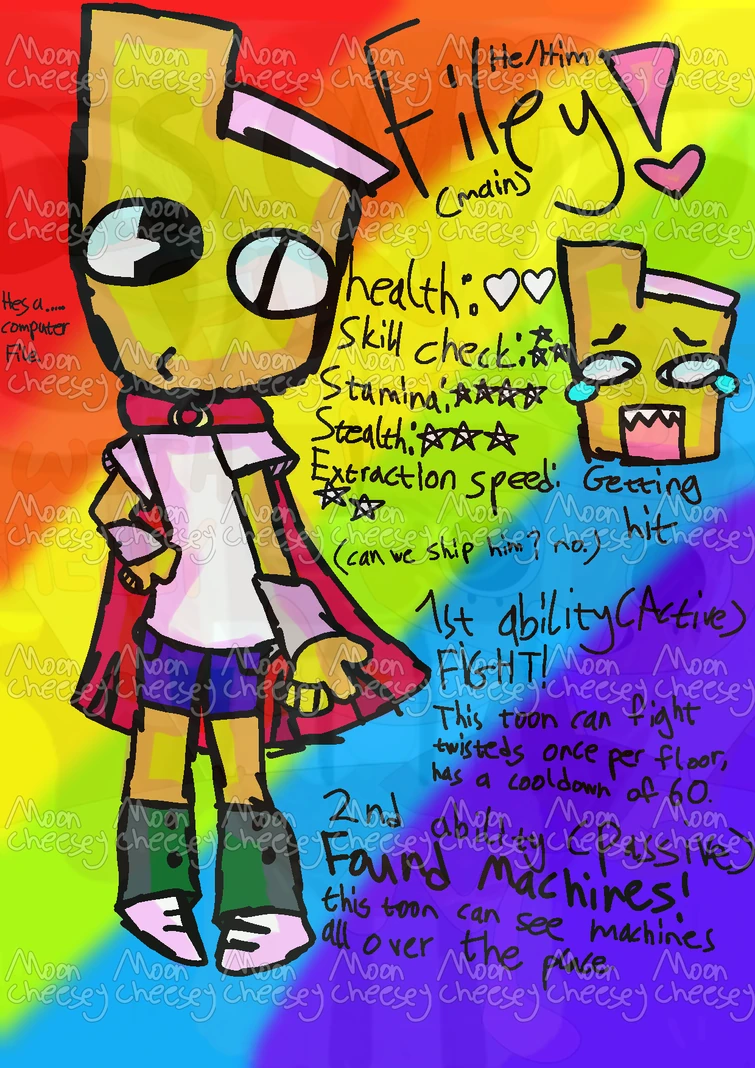 He/Him
Filey!
(main)
health:
Hes a....
computer
File.
Skill check:
Stamina:
Stealth:
Extraction speed:
Getting
hit
(can we ship him? no.)
1st ability (Active)
FIGHT!
This toon can fight
twisteds once per floor,
has a cooldown of 60.
2nd ability (Passive)
Found Machines!
this toon can see machines
all over the place
Moon
Cheesey